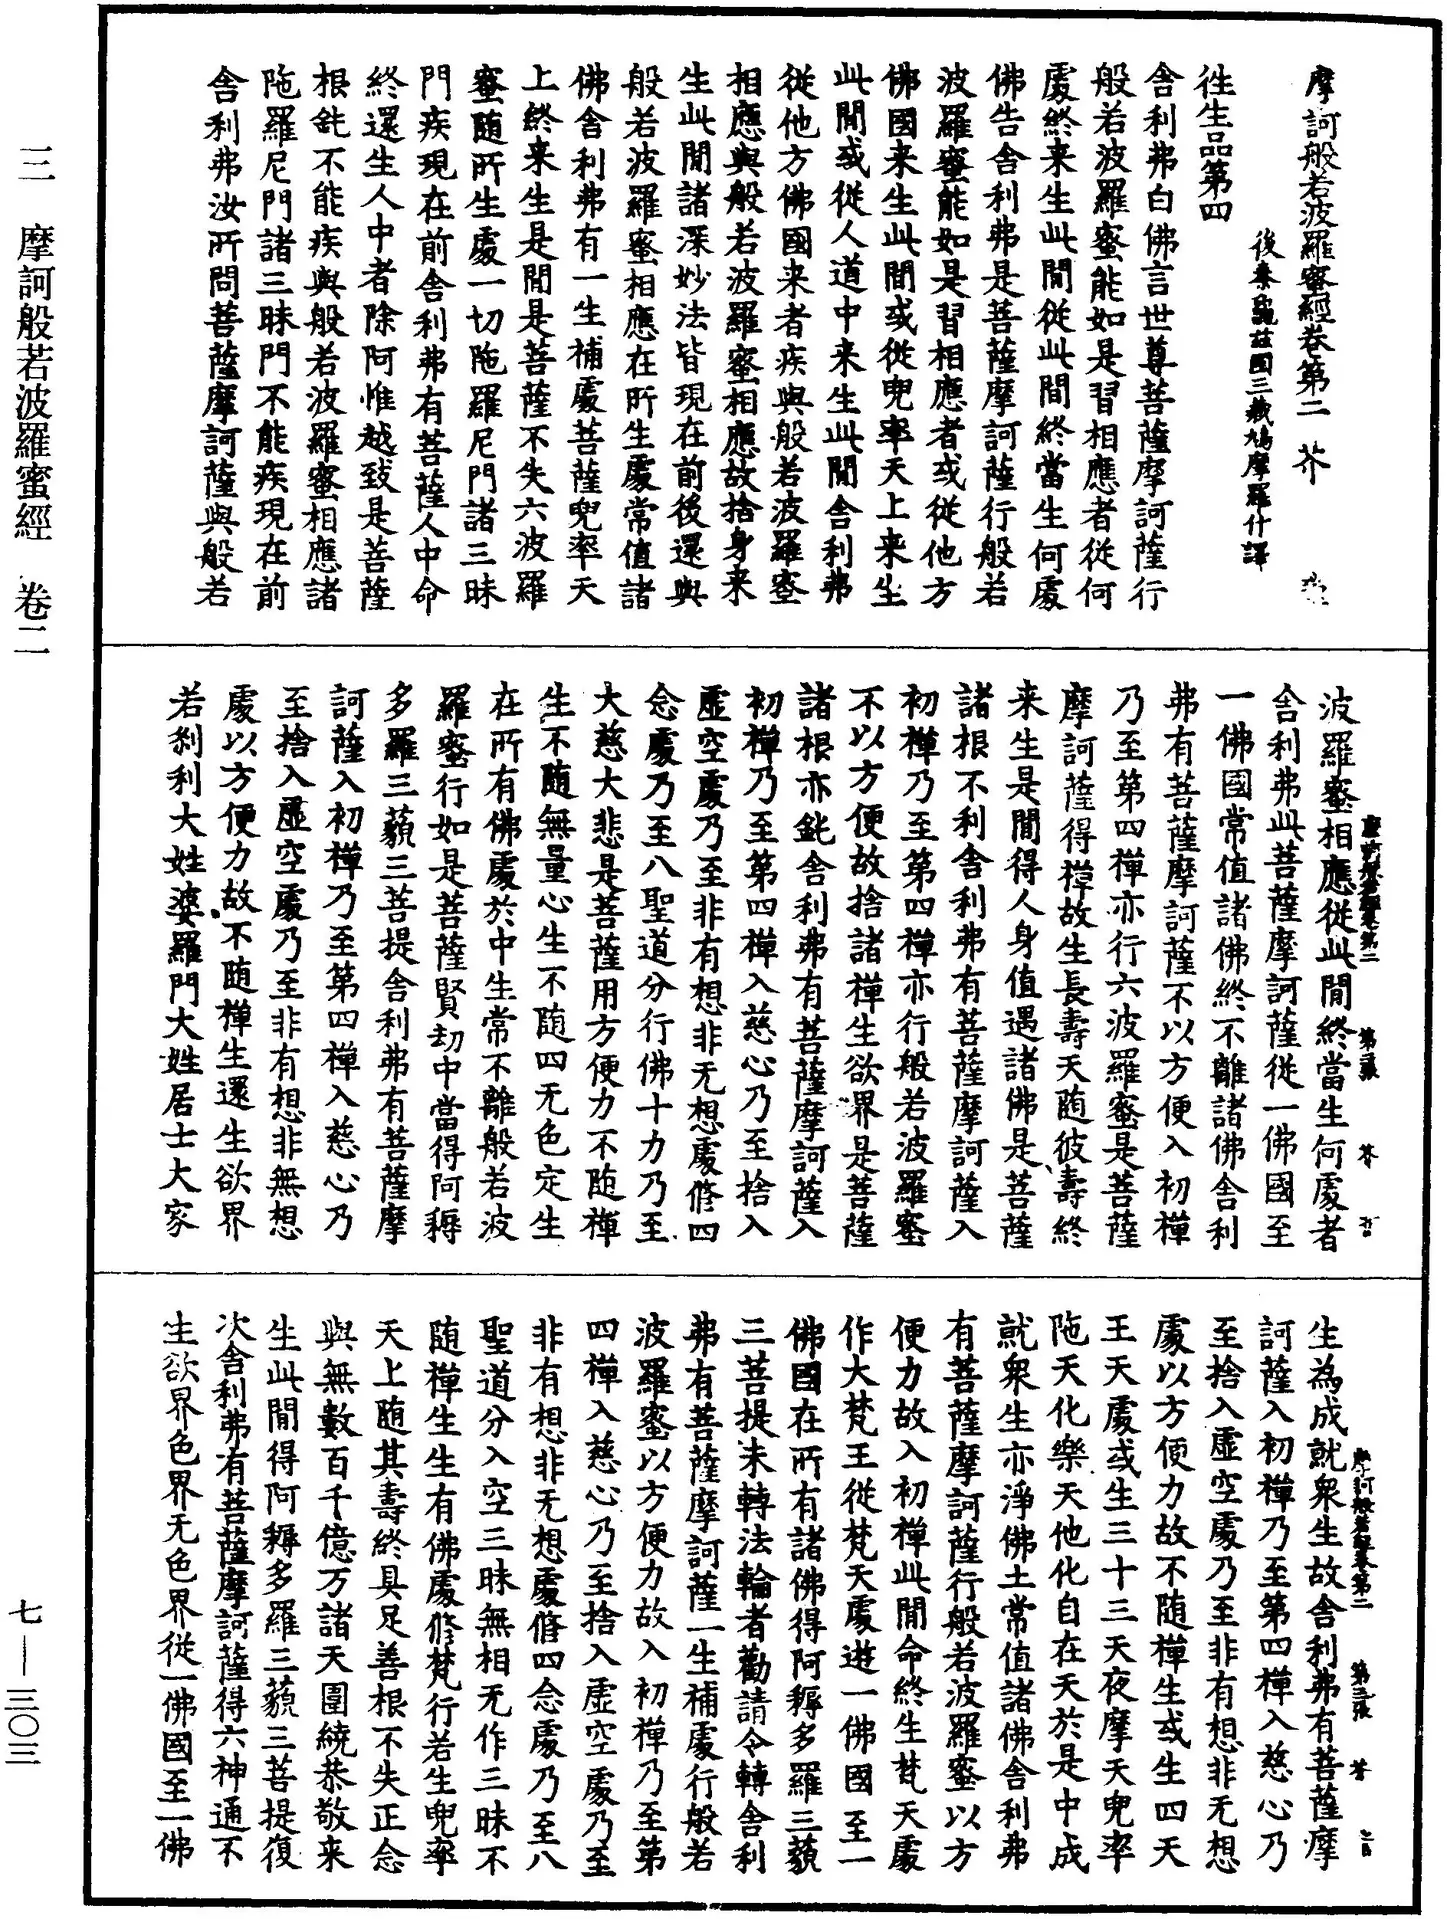 摩訶般若波羅蜜經卷第二 芥
後秦龜茲國三藏鳩摩羅什譯
往生品第四
舍利弗白佛言世尊菩薩摩訶薩行
般若波羅蜜能如是習相應者從何
處終來生此間從此間終當生何處
佛告舍利弗是菩薩摩訶薩行般若
波羅蜜能如是習相應者或從他方
佛國来生此間或從兜率天上来生
此間或從人道中来生此間舍利弗
從他方佛國来者疾與般若波羅蜜
相應與般若波羅蜜相應故捨身来
生此間諸深妙法皆現在前後還與
般若波羅蜜相應在所生處常值諸
佛舍利弗有一生補處菩薩兜率天
上終来生是間是菩薩不失六波羅
蜜随所生處一切陁羅尼門諸三昧
門疾現在前舍利弗有菩薩人中命
終還生人中者除阿惟越致是菩薩
根鈍不能疾與般若波羅蜜相應諸
陁羅尼門諸三昧門不能疾現在前
舍利弗汝所問菩薩摩訶薩與般若
波羅蜜相應從此間終當生何處者
舍利弗此菩薩摩訶薩從一佛國至
一佛國常值諸佛終不離諸佛舍利
弗有菩薩摩訶薩不以方便入初禪
乃至第四禪亦行六波羅蜜是菩薩
摩訶薩得禪故生長壽天随彼壽終
来生是間得人身值遇諸佛是菩薩
諸根不利舍利弗有菩薩摩訶薩入
初禪乃至第四禪亦行般若波羅蜜
不以方便故捨諸禪生欲界是菩薩
諸根亦鈍舍利弗有菩薩摩訶薩入
初禪乃至第四禪入慈心乃至捨入
虛空處乃至非有想非无想處修四
念處乃至八聖道分行佛十力乃至
大慈大悲是菩薩用方便力不随禪
生不随無量心生不随四无色定生
在所有佛處於中生常不離般若波
羅蜜行如是菩薩賢劫中當得阿耨
多羅三藐三菩提舍利弗有菩薩摩
訶薩入初禪乃至第四禪入慈心乃
至捨入虛空處乃至非有想非無想
處以方便力故不随禪生還生欲界
若刹利大姓婆羅門大姓居士大家
生為成就衆生故舍利弗有菩薩摩
訶薩入初禪乃至第四禪入慈心乃
至捨入虛空處乃至非有想非无想
處以方便力故不随禪生或生四天
王天處或生三十三天夜摩天兜率
陁天化樂天他化自在天於是中成
就衆生亦淨佛土常值諸佛舍利弗
有菩薩摩訶薩行般若波羅蜜以方
便力故入初禪此間命終生梵天處
作大梵王從梵天處遊一佛國至一
佛國在所有諸佛得阿耨多羅三藐
三菩提未轉法輪者勸請令轉舍利
弗有菩薩摩訶薩一生補處行般若
波羅蜜以方便力故入初禪乃至第
四禪入慈心乃至捨入虛空處乃至
非有想非无想處修四念處乃至八
聖道分入空三昧無相无作三昧不
随禪生生有佛處修梵行若生兜率
天上随其壽終具足善根不失正念
與無數百千億万諸天圍繞恭敬来
生此間得阿耨多羅三藐三菩提復
次舍利弗有菩薩摩訶薩得六神通不
生欲界色界无色界從一佛國至一佛
摩訶般若經卷第二 第二張 芥
摩訶般若經卷第二 第三張 芥
三 摩訶般若波羅蜜經 卷二
七—三〇三